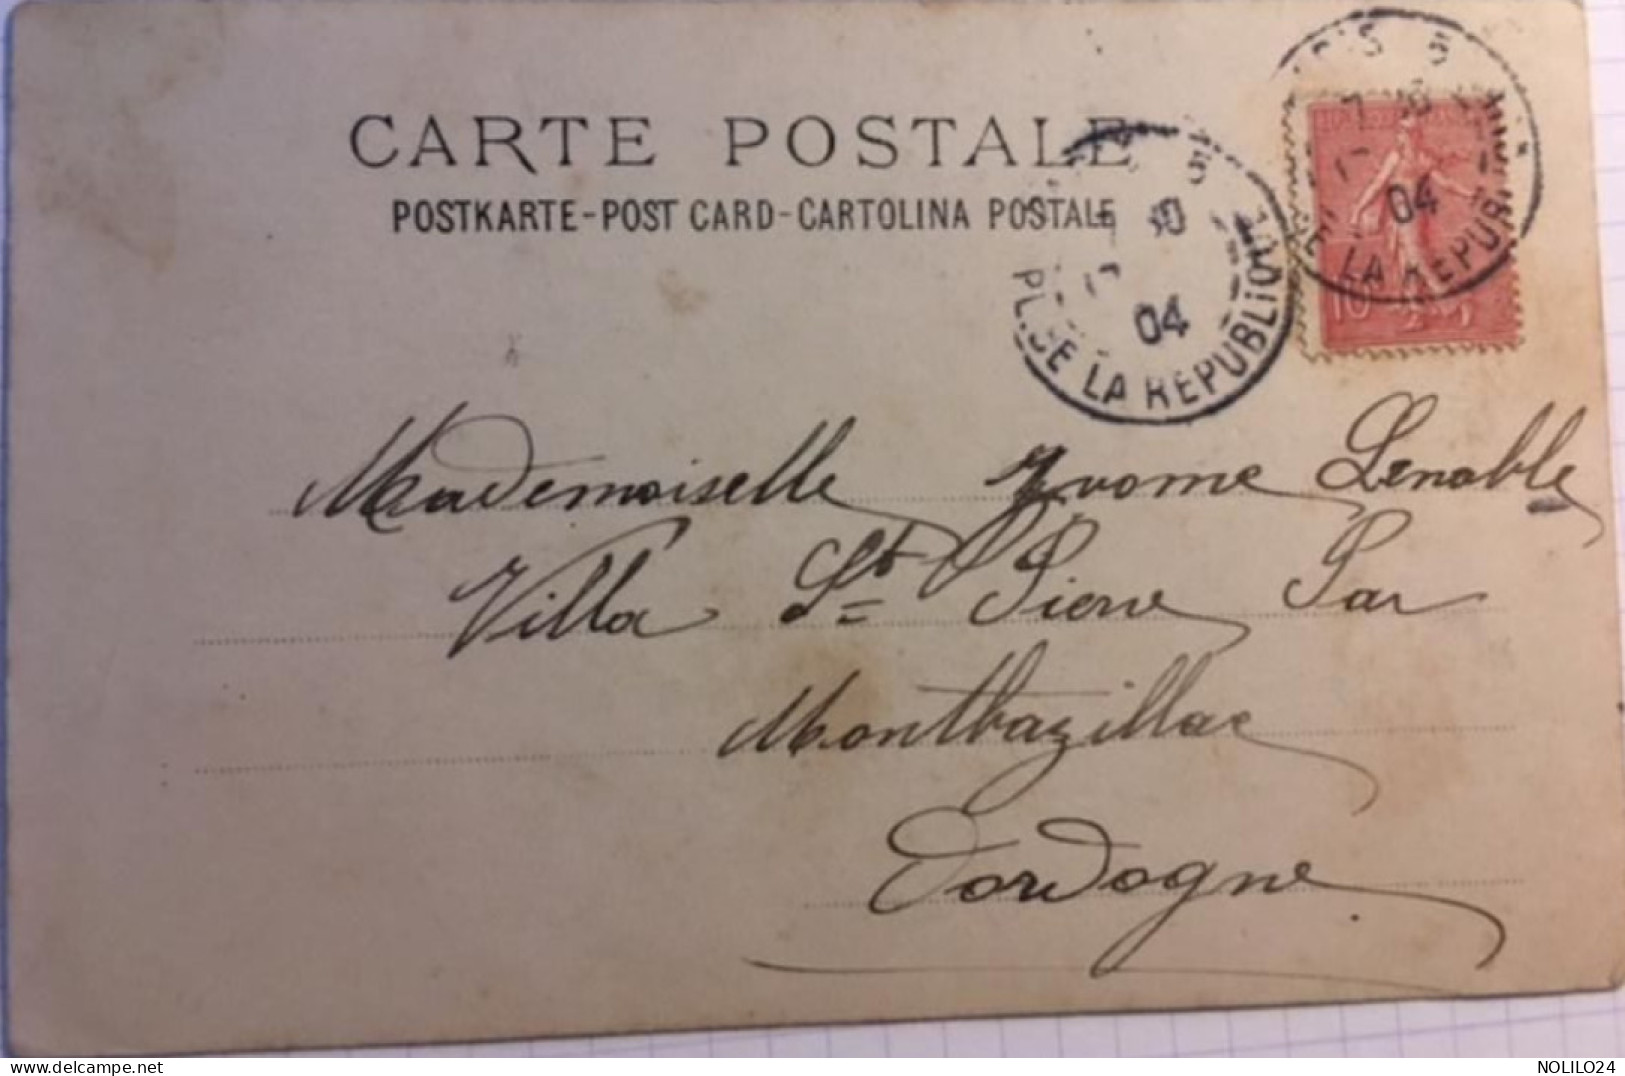 CARTE POSTALE
POSTKARTE-POST CARD-CARTOLINA POSTALE
04
PL. DE LA REPUBLIQUE
04
DE LA REPUBLIQUE
10
Mademoiselle Yvonne Lenoble
Villa St Pierre Par
Montbazillac
Dordogne
NOLILO24